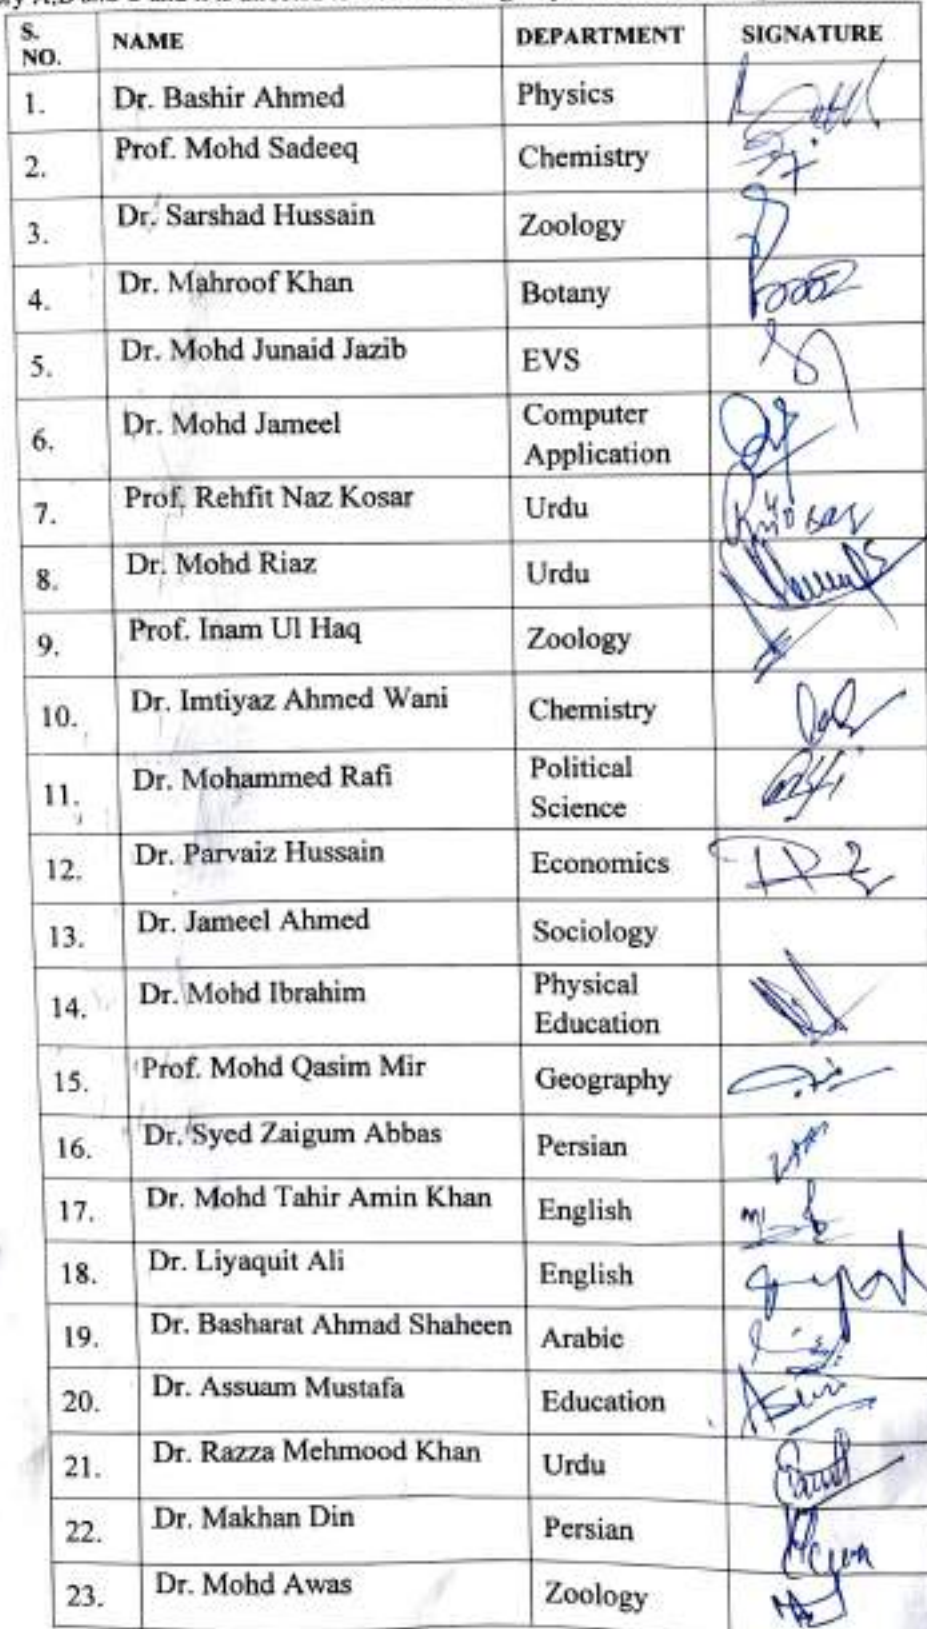 S. NO. NAME DEPARTMENT SIGNATURE
1. Dr. Bashir Ahmed Physics
2. Prof. Mohd Sadeeq Chemistry
3. Dr. Sarshad Hussain Zoology
4. Dr. Mahroof Khan Botany
5. Dr. Mohd Junaid Jazib EVS
6. Dr. Mohd Jameel Computer Application
7. Prof. Rehfit Naz Kosar Urdu
8. Dr. Mohd Riaz Urdu
9. Prof. Inam Ul Haq Zoology
10. Dr. Imtiyaz Ahmed Wani Chemistry
11. Dr. Mohammed Rafi Political Science
12. Dr. Parvaiz Hussain Economics
13. Dr. Jameel Ahmed Sociology
14. Dr. Mohd Ibrahim Physical Education
15. Prof. Mohd Qasim Mir Geography
16. Dr. Syed Zaigum Abbas Persian
17. Dr. Mohd Tahir Amin Khan English
18. Dr. Liyaquit Ali English
19. Dr. Basharat Ahmad Shaheen Arabic
20. Dr. Assuam Mustafa Education
21. Dr. Razza Mehmood Khan Urdu
22. Dr. Makhan Din Persian
23. Dr. Mohd Awas Zoology